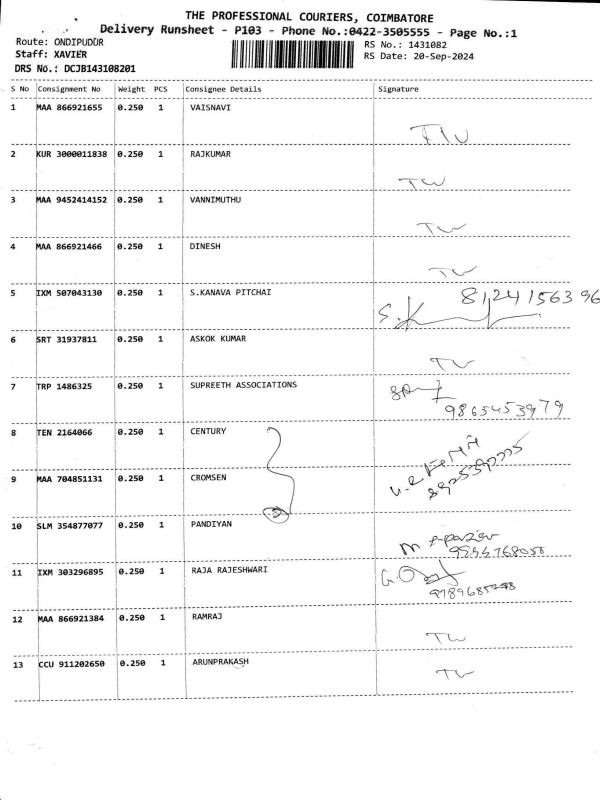 THE PROFESSIONAL COURIERS, COIMBATORE
Delivery Runsheet - P103 - Phone No.:0422-3505555 - Page No.:1
Route: ONDIPUDUR
RS No.: 1431082
Staff: XAVIER
RS Date: 20-Sep-2024
DRS No.: DCJB143108201
S No Consignment No Weight PCS Consignee Details Signature
1 MAA 866921655 0.250 1 VAISNAVI
2 KUR 3000011838 0.250 1 RAJKUMAR TW
3 MAA 9452414152 0.250 1 VANNIMUTHU TW
4 MAA 866921466 0.250 1 DINESH TW
5 IXM 507043130 0.250 1 S.KANAVA PITCHAI 8124156396
6 SRT 31937811 0.250 1 ASKOK KUMAR TW
7 TRP 1486325 0.250 1 SUPREETH ASSOCIATIONS
9865453979
8 TEN 2164066 0.250 1 CENTURY
9 MAA 704851131 0.250 1 CROMSEN
10 SLM 354877077 0.250 1 PANDIYAN
11 IXM 303296895 0.250 1 RAJA RAJESHWARI
12 MAA 866921384 0.250 1 RAMRAJ TW
13 CCU 911202650 0.250 1 ARUNPRAKASH TW